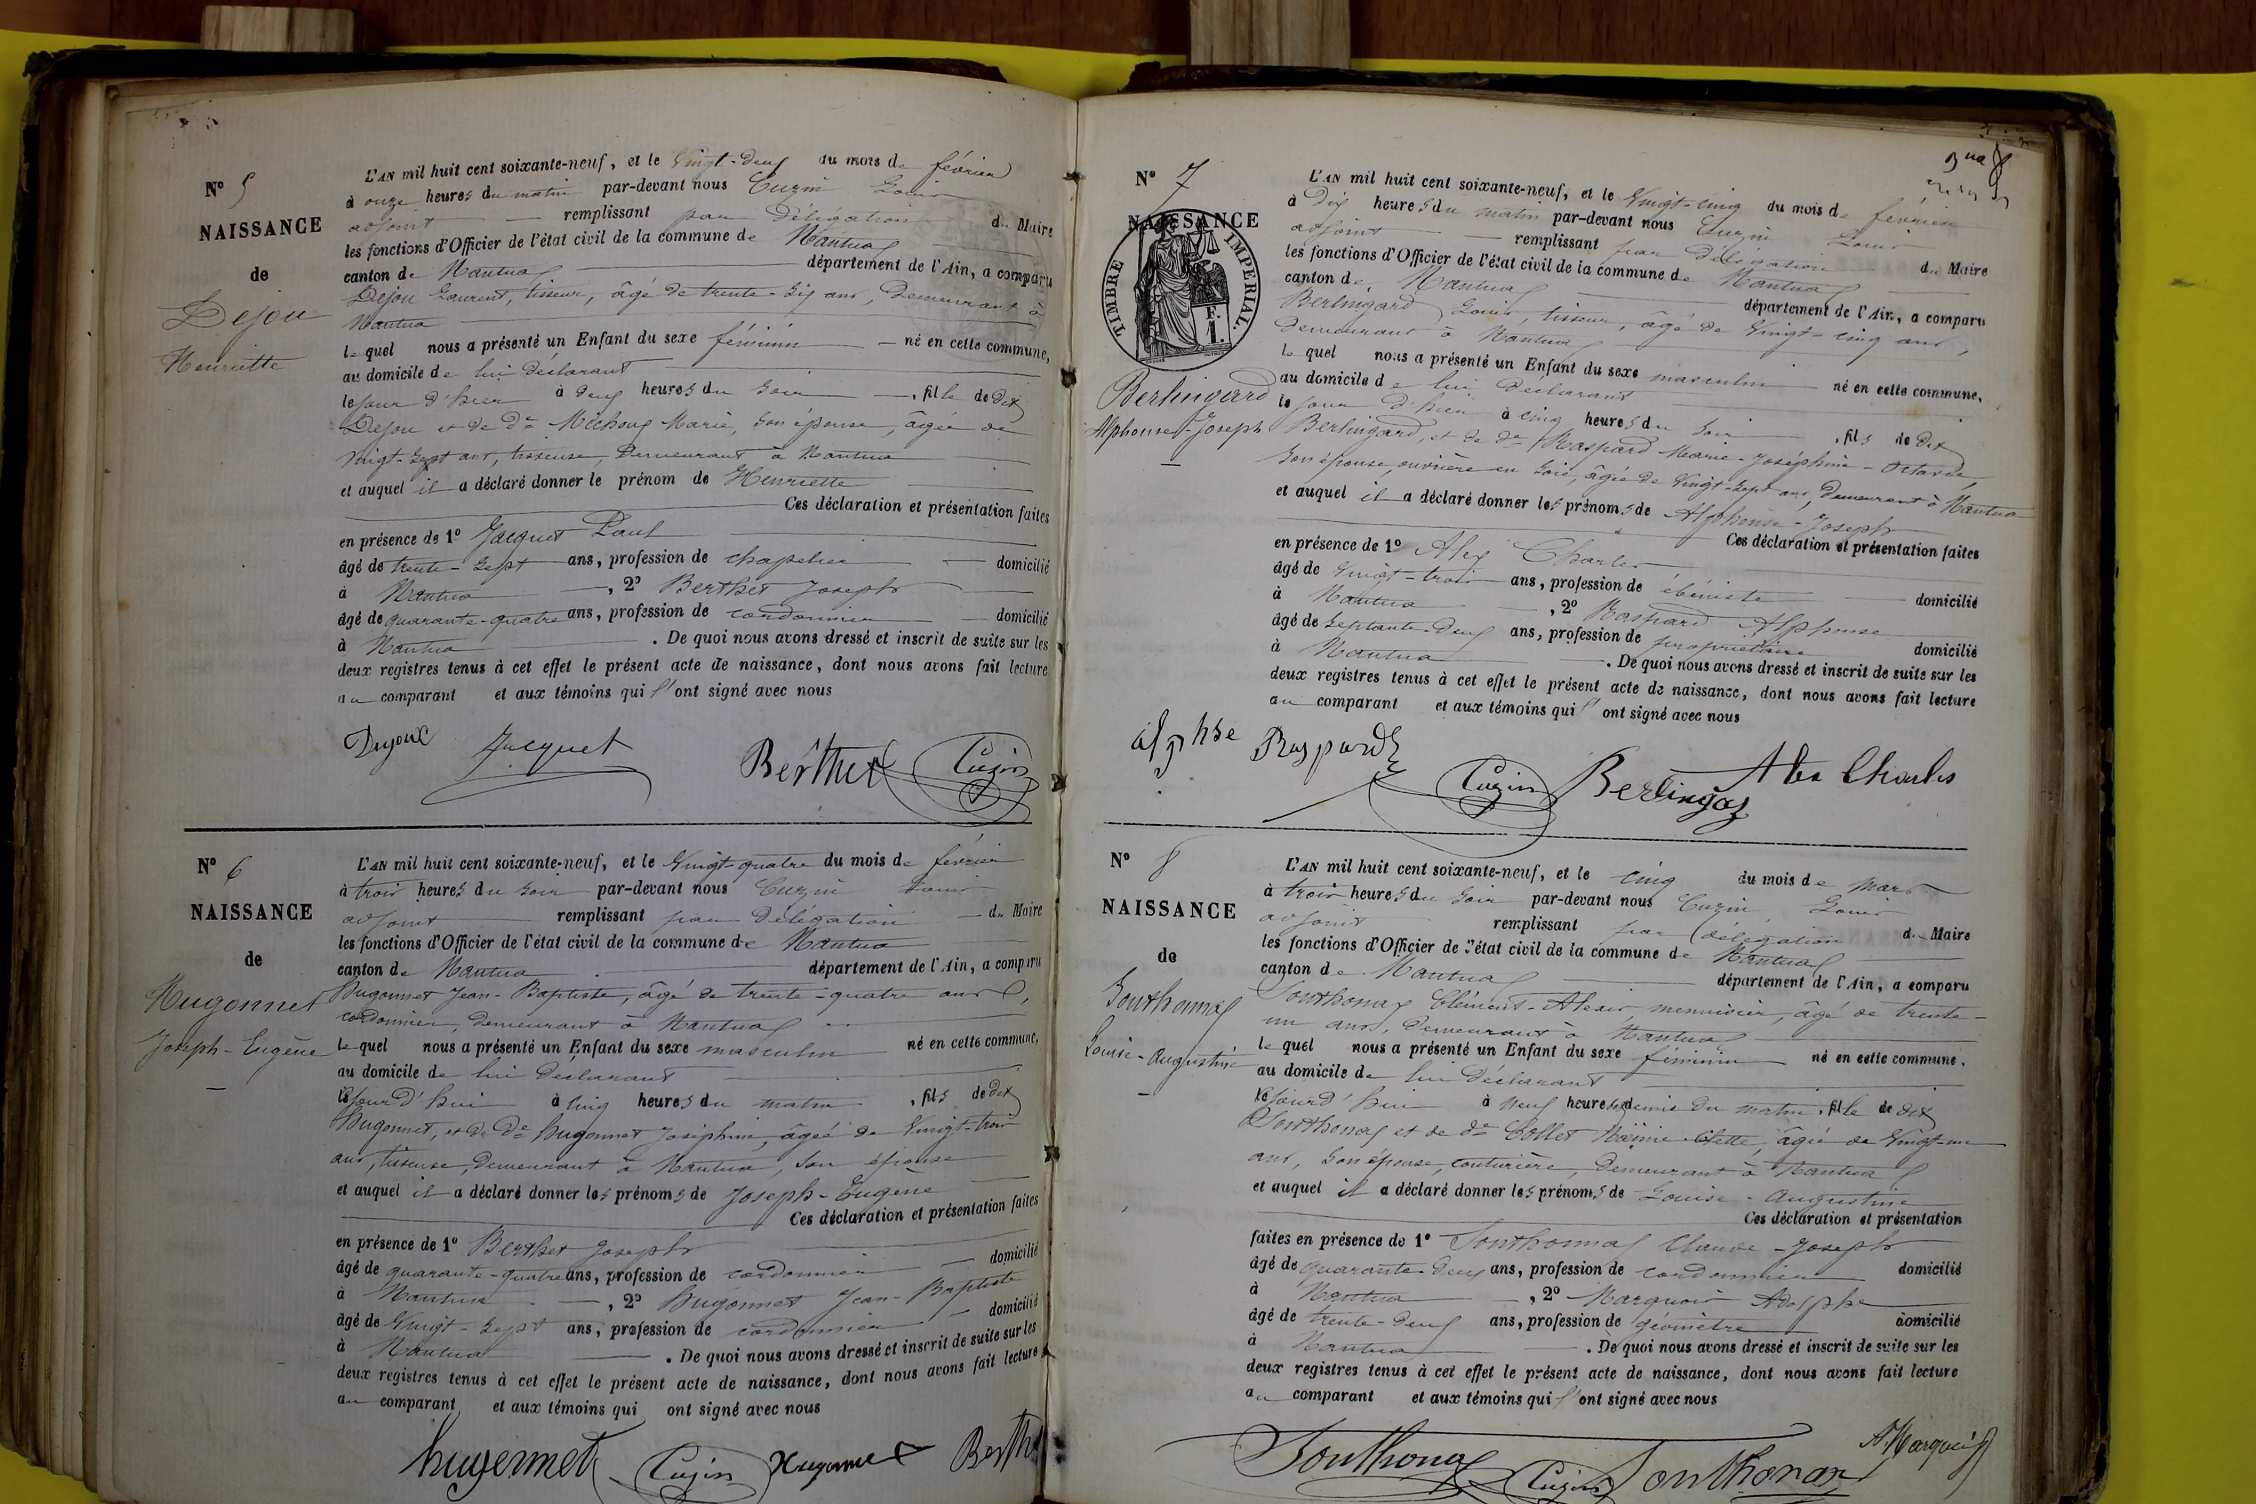 N° 5
NAISSANCE
de
Dejou
Henriette
L'AN mil huit cent soixante-neuf, et le Vingt-deux du mois de février
à onze heures du matin par-devant nous Cuzin Louis
adjoint remplissant par délégation du Maire
les fonctions d'Officier de l'état civil de la commune de Nantua
canton de Nantua département de l'Ain, a comparu
Dejou Laurent, tisseur, âgé de trente-six ans, demeurant à
Nantua
le quel nous a présenté un Enfant du sexe féminin né en cette commune,
au domicile de lui déclarant
le jour d'hier à deux heures du soir, fille de dit
Dejou et de De Michoux Marie, son épouse, âgée de
vingt-sept ans, tisseuse, demeurant à Nantua
et auquel il a déclaré donner le prénom de Henriette
Ces déclaration et présentation faites
en présence de 1° Jacquet Paul
âgé de trente-sept ans, profession de chapelier domicilié
à Nantua, 2° Berthet Joseph
âgé de quarante-quatre ans, profession de cordonnier domicilié
à Nantua. De quoi nous avons dressé et inscrit de suite sur les
deux registres tenus à cet effet le présent acte de naissance, dont nous avons fait lecture
au comparant et aux témoins qui l'ont signé avec nous
Dejoux Jacquet Berthet Cuzin
N° 6
NAISSANCE
de
Hugonnet
Joseph-Eugène
L'AN mil huit cent soixante-neuf, et le Vingt-quatre du mois de février
à trois heures du soir par-devant nous Cuzin Louis
adjoint remplissant par délégation du Maire
les fonctions d'Officier de l'état civil de la commune de Nantua
canton de Nantua département de l'Ain, a comparu
Hugonnet Jean-Baptiste, âgé de trente-quatre ans,
cordonnier, demeurant à Nantua
le quel nous a présenté un Enfant du sexe masculin né en cette commune,
au domicile de lui déclarant
le jour d'hui à cinq heures du matin, fils de dit
Hugonnet, et de De Hugonnet Joséphine, âgée de Vingt-trois
ans, tisseuse, demeurant à Nantua, son épouse
et auquel il a déclaré donner les prénoms de Joseph-Eugène
Ces déclaration et présentation faites
en présence de 1° Berthet Joseph
âgé de quarante-quatre ans, profession de cordonnier domicilié
à Nantua, 2° Hugonnet Jean-Baptiste
âgé de Vingt-sept ans, profession de cordonnier domicilié
à Nantua. De quoi nous avons dressé et inscrit de suite sur les
deux registres tenus à cet effet le présent acte de naissance, dont nous avons fait lecture
au comparant et aux témoins qui ont signé avec nous
hugonnet Cuzin Hugonnet Berth
N° 7
NAISSANCE
TIMBRE IMPERIAL.
F.
1.
Berlingard
Alphonse-Joseph
L'AN mil huit cent soixante-neuf, et le Vingt-cinq du mois de février
à dix heures du matin par-devant nous Cuzin Louis
adjoint remplissant par délégation du Maire
les fonctions d'Officier de l'état civil de la commune de Nantua
canton de Nantua département de l'Ain, a comparu
Berlingard Louis, tisseur, âgé de Vingt-cinq ans,
demeurant à Nantua
le quel nous a présenté un Enfant du sexe masculin né en cette commune,
au domicile de lui déclarant
le jour d'hier à cinq heures du soir, fils de dit
Berlingard, et de De Raspard Marie-Joséphine-Octavie
son épouse, ouvrière en soie, âgée de Vingt-sept ans, demeurant à Nantua
et auquel il a déclaré donner les prénoms de Alphonse-Joseph
Ces déclaration et présentation faites
en présence de 1° Alex Charles
âgé de Vingt-trois ans, profession de ébéniste domicilié
à Nantua, 2° Raspard Alphonse
âgé de septante-deux ans, profession de propriétaire domicilié
à Nantua. De quoi nous avons dressé et inscrit de suite sur les
deux registres tenus à cet effet le présent acte de naissance, dont nous avons fait lecture
au comparant et aux témoins qui l'ont signé avec nous
alphse Raspard Cuzin Berlingard Alex Charles
N° 8
NAISSANCE
de
Southonnax
Louise-Augustine
L'AN mil huit cent soixante-neuf, et le cinq du mois de mars
à trois heures du soir par-devant nous Cuzin, Louis
adjoint remplissant par délégation du Maire
les fonctions d'Officier de l'état civil de la commune de Nantua
canton de Nantua département de l'Ain, a comparu
Southonnax Clément-Alexis, menuisier, âgé de trente-
un ans, demeurant à Nantua
le quel nous a présenté un Enfant du sexe féminin né en cette commune,
au domicile de lui déclarant
le jourd'hui à neuf heures et demie du matin, fille de dit
Southonax et de De Collet, âgée de Vingt-un
ans, son épouse, couturière, demeurant à Nantua
et auquel il a déclaré donner les prénoms de Louise-Augustine
Ces déclaration et présentation
faites en présence de 1° Southonnax Claude-Joseph
âgé de quarante-deux ans, profession de cordonnier domicilié
à Nantua, 2° Marquois Adolphe
âgé de trente-deux ans, profession de géomètre domicilié
à Nantua. De quoi nous avons dressé et inscrit de suite sur les
deux registres tenus à cet effet le présent acte de naissance, dont nous avons fait lecture
au comparant et aux témoins qui l'ont signé avec nous
Southonax Cuzin Southonax A. Marquois